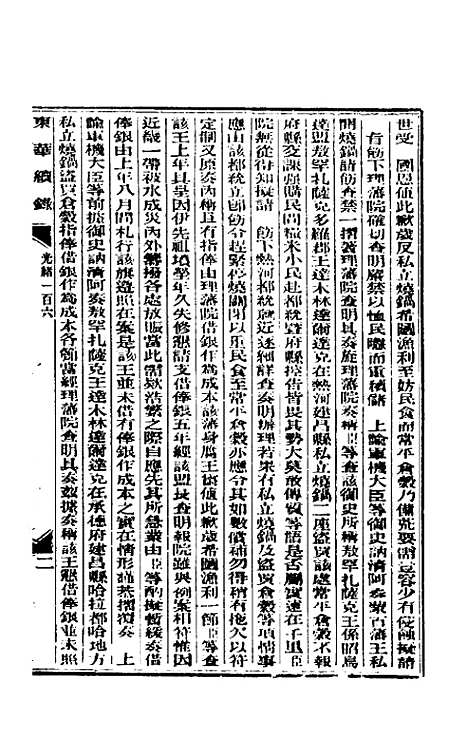 世受　國恩值此歉歲反私立燒鍋希圖漁利至妨民食而常平倉穀乃備荒要需豈容少有侵蝕擬請
旨飭下理藩院確切查明嚴禁以恤民瘼而重積儲　上諭軍機大臣等御史訥清阿奏蒙古藩王私
開燒鍋請飭查禁一摺著理藩院查明具奏旋理藩院奏稱臣等查該御史所稱敖罕扎薩克王係昭烏
達盟敖罕扎薩克多羅郡王達木林達爾達克在熱河建昌縣私立燒鍋二座盜買該處常平倉穀不報
府縣交課強購民間糧米小民赴都統暨府縣控告皆畏其勢大莫敢傳質等語是否屬實遠在千里臣
院無從得知擬請　飭下熱河都統就近逐細詳查奏明辦理若果有私立燒鍋及盜買倉穀等項情事
應由該都統立即飭令趕緊停燒關閉以重民食至常平倉穀亦應令其如數償補勿得稍有拖欠以符
定制又原奏內稱且有指俸由理藩院借銀作為成本該藩身膺王
該王上年具呈因伊先祖墳塋年久失修懇請支借俸銀五年經該盟長查明報院雖與例案相符惟因
近畿一帶被水成災內外籌撥各處放賑當此需款浩繁之際自應先其所急業由臣等酌擬暫緩奏借
俸銀由上年八月間札行該旗遵照在案是該王並未借有俸銀作成本之實在情形謹恭摺覆奏　上
諭軍機大臣等前據御史訥清阿奏敖罕扎薩克王達木林達爾達克在承德府建昌縣哈拉都哈地方
私立燒鍋盜買倉穀指俸借銀作為成本各節當經理藩院查明具奏茲據奏稱該王懇借俸銀並未照
東華續錄
光緒一百六
二